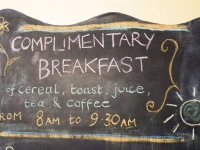 COMPLIMENTARY
BREAKFAST
of cereal, toast, juice,
tea & coffee
FROM 8AM to 9.30AM